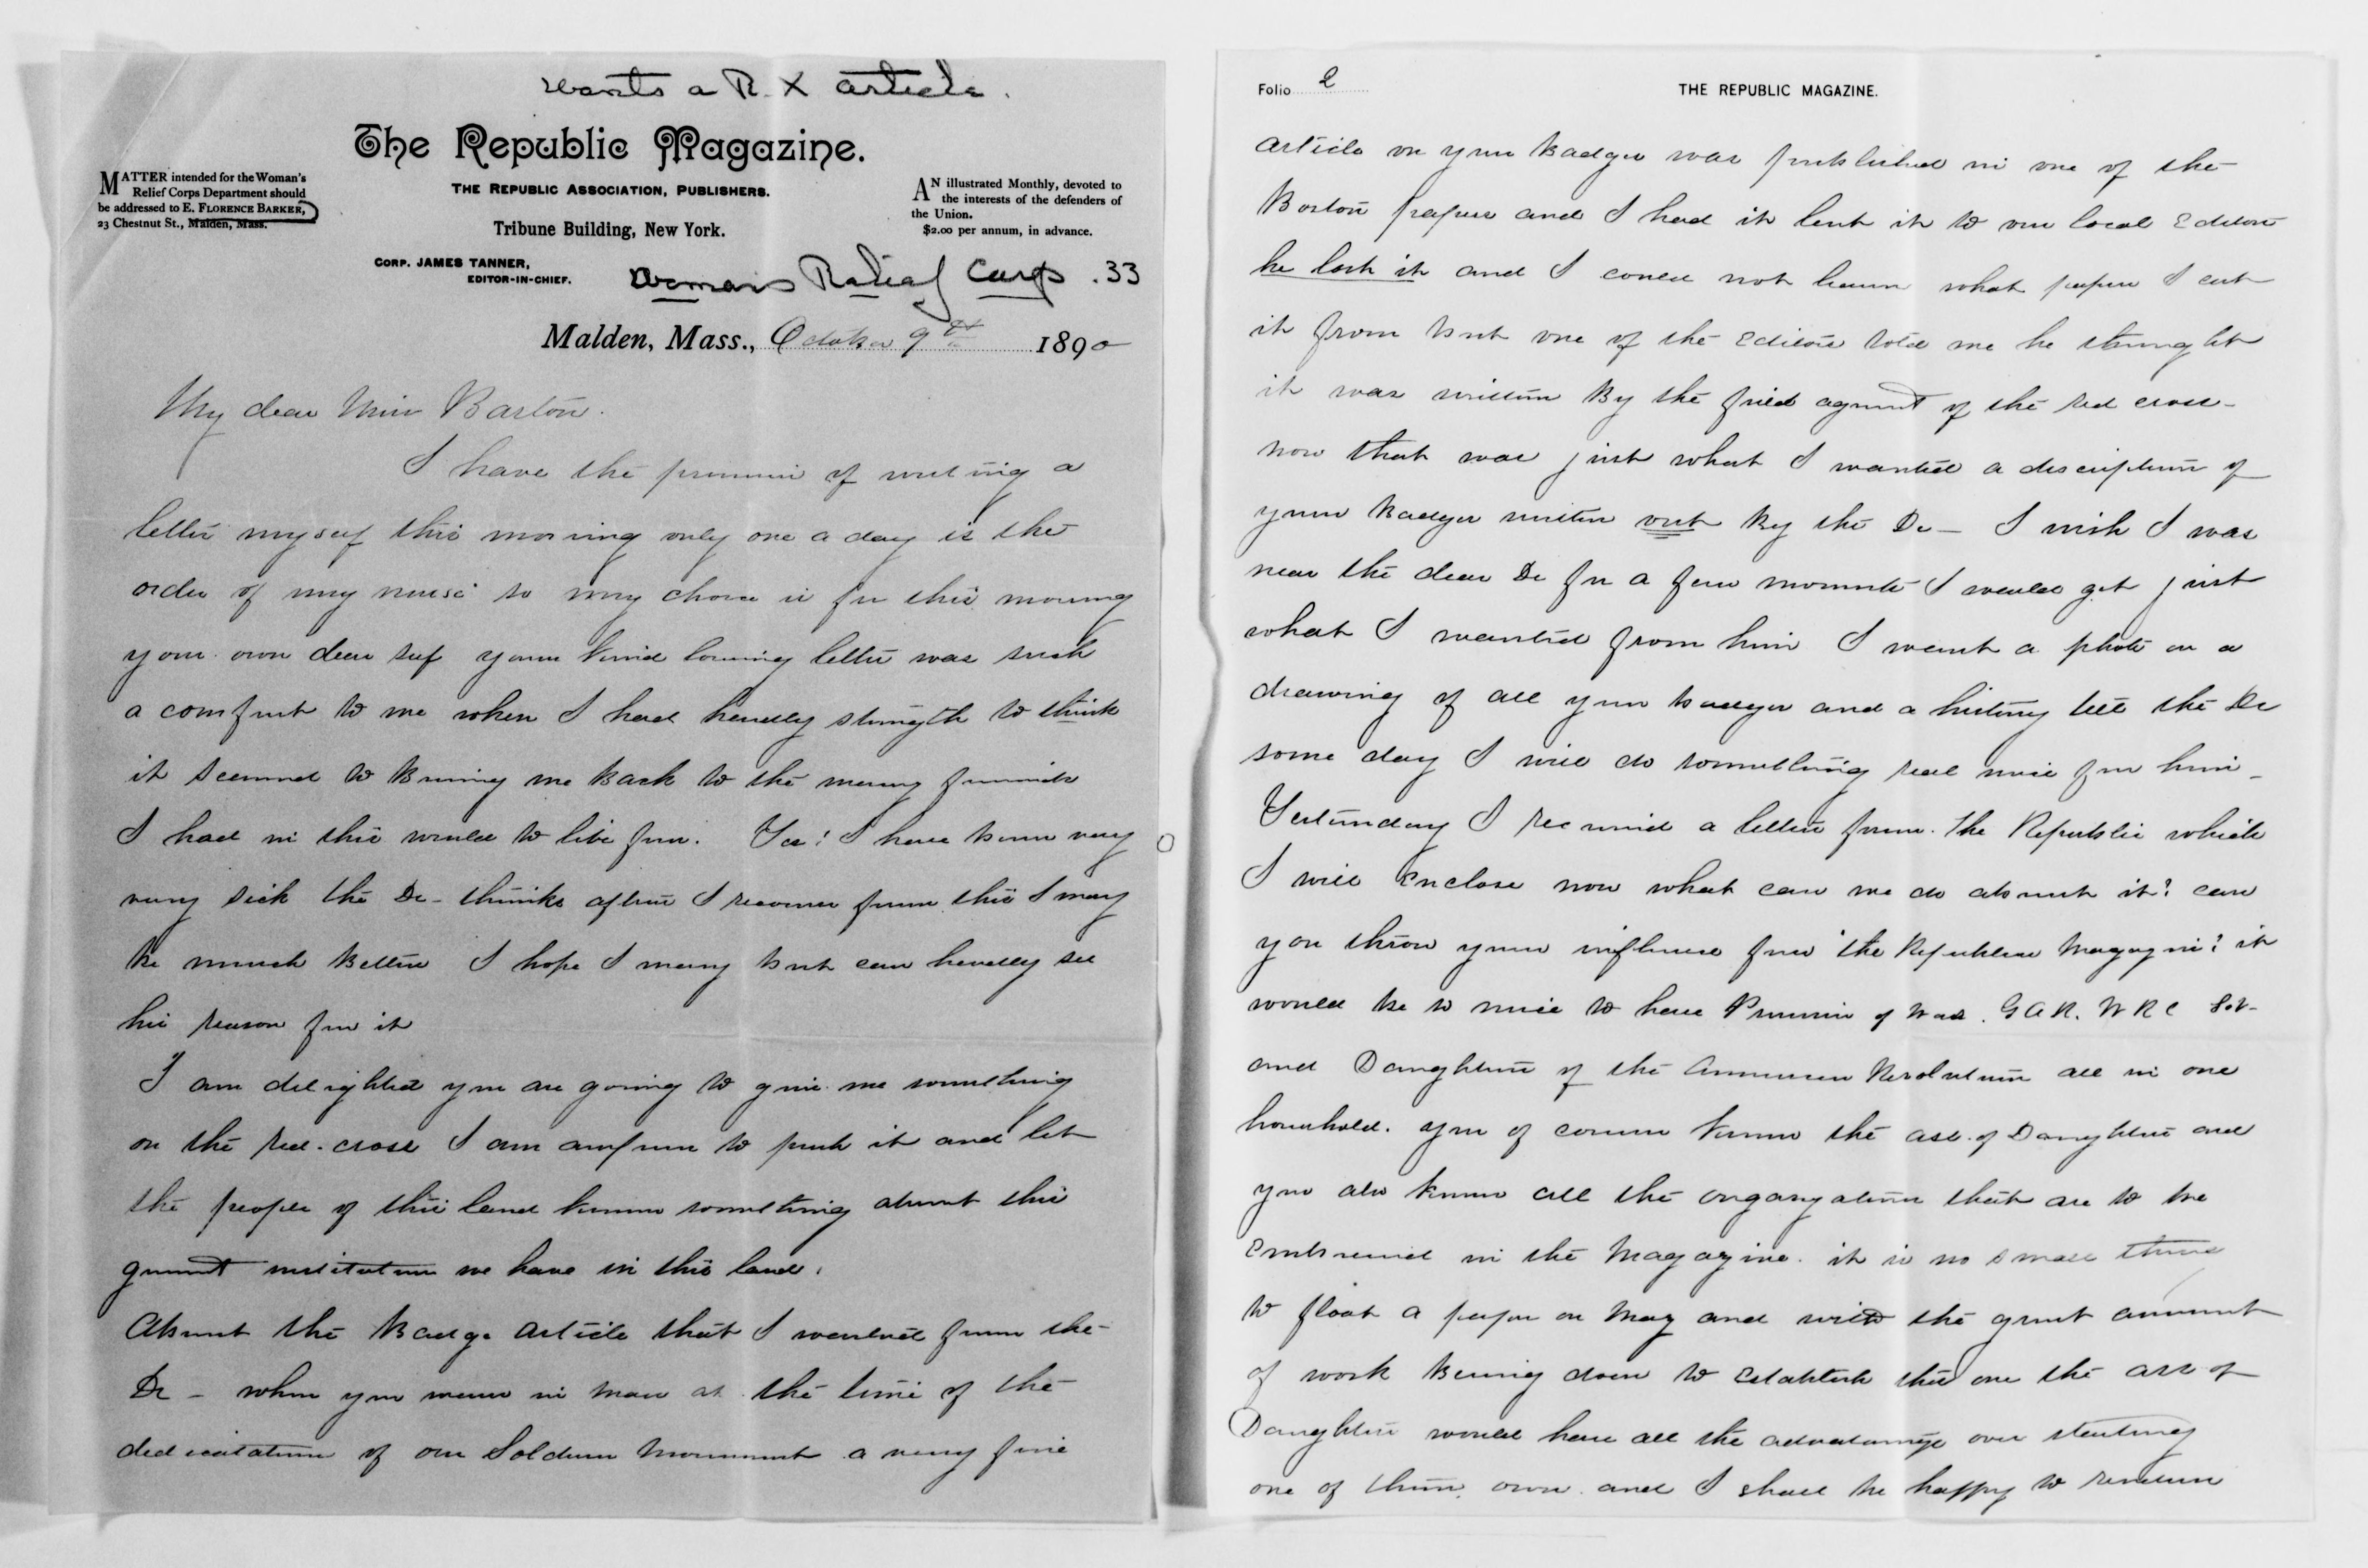 wants a R. X article.
The Republic Magazine.
MATTER intended for the Woman's
Relief Corps Department should
be addressed to E. FLORENCE BARKER,
23 Chestnut St., Malden, Mass.
THE REPUBLIC ASSOCIATION, PUBLISHERS.
Tribune Building, New York.
AN illustrated Monthly, devoted to
the interests of the defenders of
the Union.
$2.00 per annum, in advance.
CORP. JAMES TANNER,
EDITOR-IN-CHIEF.
Womans Relief Corps .33
Malden, Mass., October 9th 1890
My dear Miss Barton.
I have the promise of writing a
letter myself this morning only one a day is the
order of my nurse so my choice is for this morning
your own dear self your kind loving letter was such
a comfort to me when I had hardly strength to think
it seemed to bring me back to the many friends
I had in this world to live for. Yes! I have been very
very sick the Dr - thinks after I recover from this I may
be much better I hope I may but can hardly see
his reason for it
I am delighted you are going to give me something
on the red-cross I am anxious to push it and let
the people of this land know something about this
grand institution we have in this land.
About the Badge article that I wanted from the
Dr - when you were in Mass at the time of the
dedication of our Soldiers Monument a very fine
Folio 2
THE REPUBLIC MAGAZINE.
article on your Badges was published in one of the
Boston papers and I had it lent it to our local Editor
he lost it and I could not learn what paper I cut
it from but one of the Editors told me he thought
it was written by the field agent of the red cross-
now that was just what I wanted a description of
your Badges written out by the Dr - I wish I was
near the dear Dr for a few moments I would get just
what I wanted from him I want a photo or a
drawing of all your badges and a history tell the Dr
some day I will do something real nice for him -
Yesterday I received a letter from the Republic which
I will Enclose now what can we do about it? can
you throw your influence for the Republic Magazine? it
would be so nice to have Prisoners of War. G A R. W R C S.V-
and Daughters of the American Revolution all in one
household. you of course know the ass. of Daughters and
you also know all the organization that are to be
Embraced in the Magazine. it is no small thing
to float a paper or Mag and with the great amount
of work being done to Establish this one the ass of
Daughters would have all the advantage over starting
one of their own and I shall be happy to render